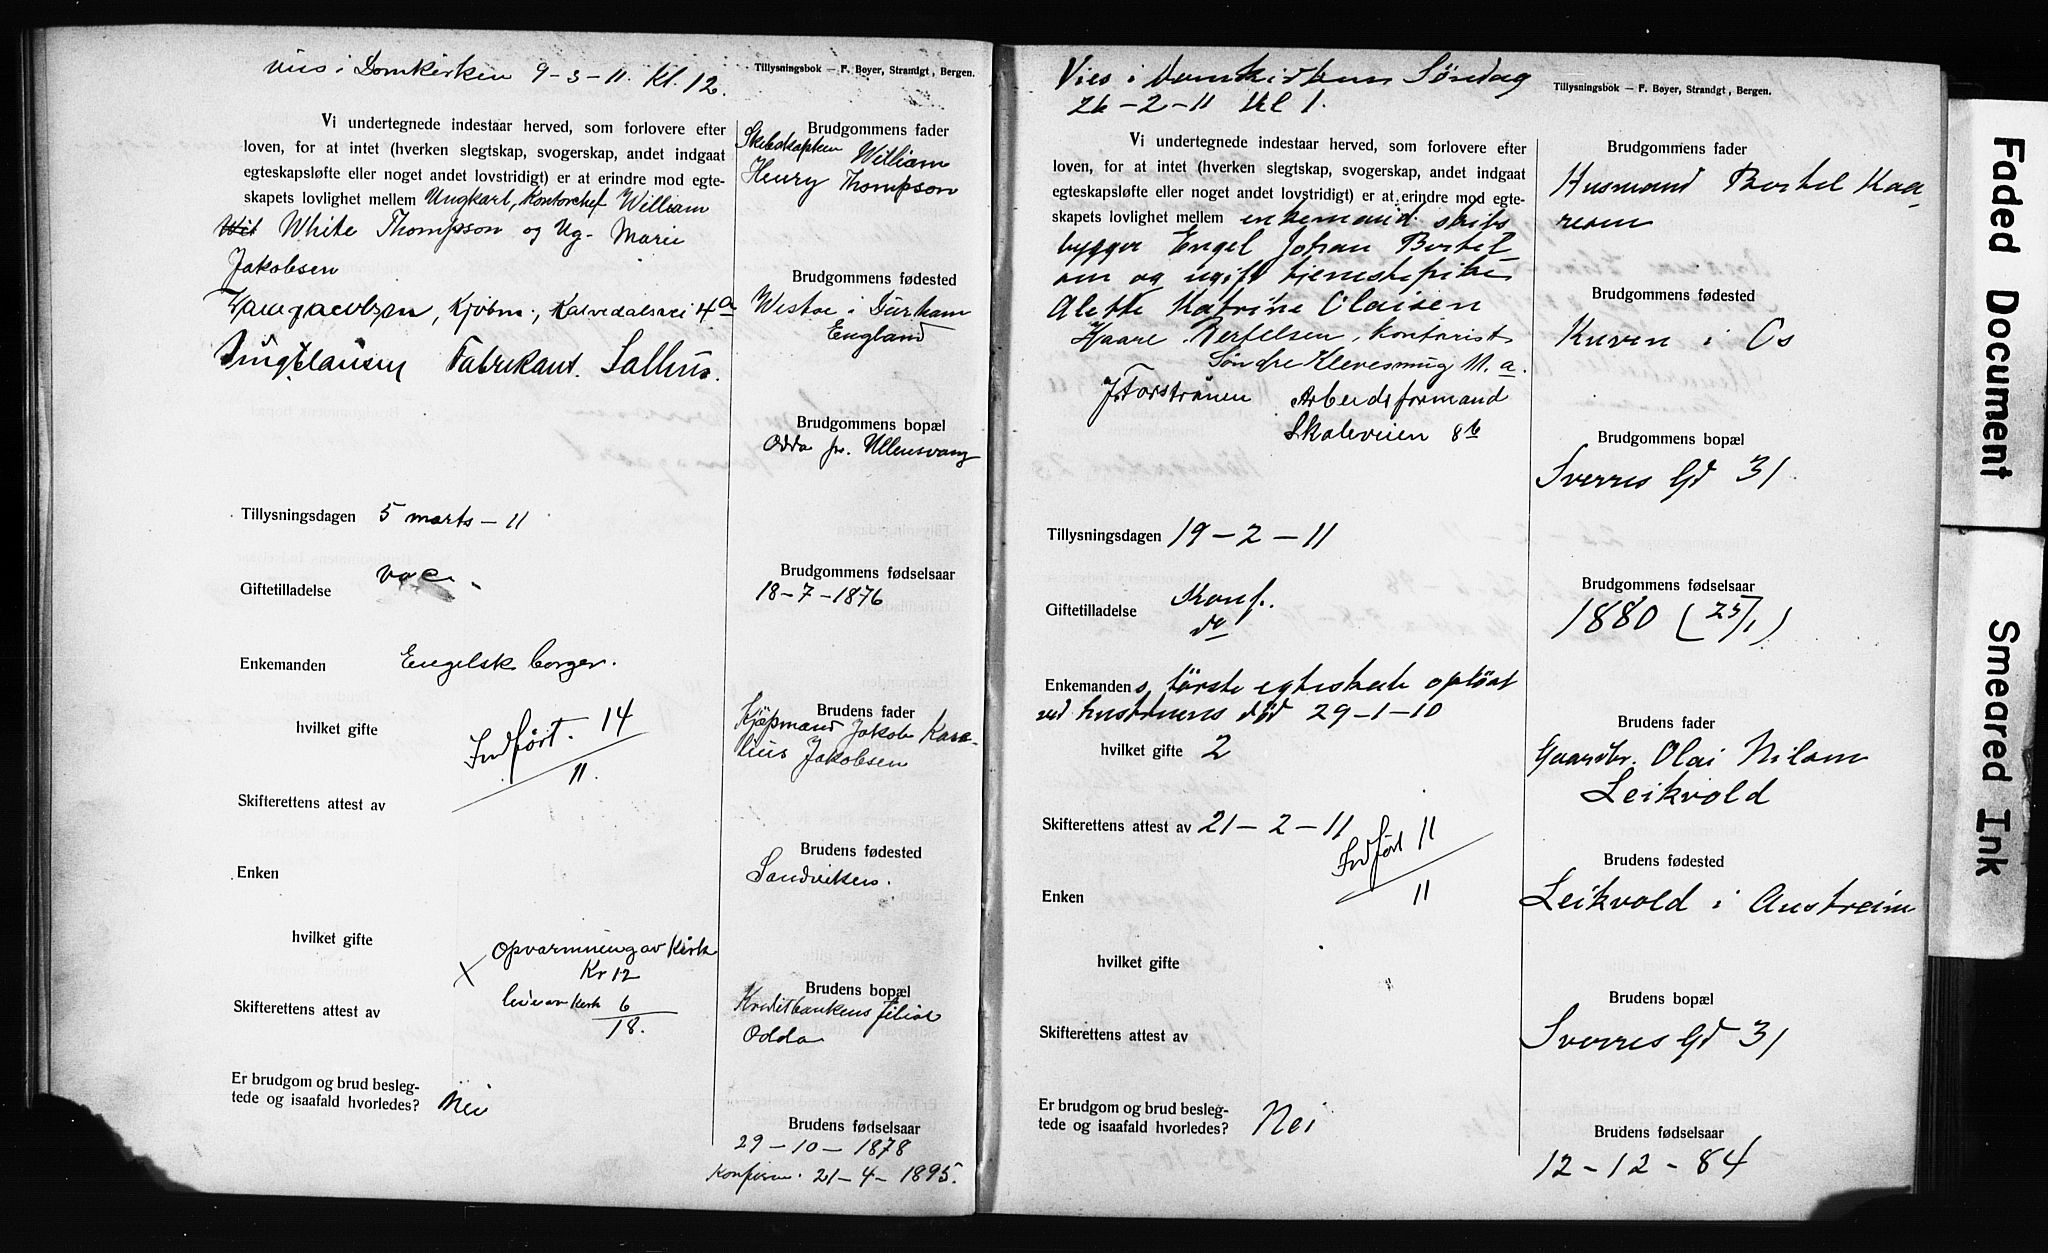 vies i Domkirken 9-3-11. Kl. 12.
Tillysningsbok — F. Boyer, Strandgt, Bergen.
Vi undertegnede indestaar herved, som forlovere efter
loven, for at intet (hverken slegtskap, svogerskap, andet indgaat
egteskapsløfte eller noget andet lovstridigt) er at erindre mod egte-
skapets lovlighet mellem Ungkarl, Kontorchef William
Wil White Thompson og Ug. Marie
Jakobsen
Kjøbm., Kalvedalsvei 4a
Fabrikant. Salhus.
Tillysningsdagen 5 marts - 11
Giftetilladelse vac.
Enkemanden Engelsk borger.
hvilket gifte
Indført. 14
11.
Skifterettens attest av
Enken
hvilket gifte
Opvarmning av Kirk
x Kr 12
leie av Kirk 6
18.
Skifterettens attest av
Er brudgom og brud besleg-
tede og isaafald hvorledes? Nei
Brudgommens fader
Skibskaptein William
Henry Thompson
Brudgommens fødested
Westoe i Durham
England
Brudgommens bopæl
Odda pr. Ullensvang
Brudgommens fødselsaar
18-7-1876
Brudens fader
Kjøpmand Jakob Kar
lius Jakobsen
Brudens fødested
Sandviken.
Brudens bopæl
Kreditbankens filial
Odda
Brudens fødselsaar
29-10-1878
Konfirm. 21-4-1895.
Vies i Domkirken Søndag
26-2-11 Kl 1.
Tillysningsbok — F. Boyer, Strandgt, Bergen.
Vi undertegnede indestaar herved, som forlovere efter
loven, for at intet (hverken slegtskap, svogerskap, andet indgaat
egteskapsløfte eller noget andet lovstridigt) er at erindre mod egte-
skapets lovlighet mellem enkemand. skibs
bygger Engel Johan Bertel
sen og ugift tjenestepike
Alette Katrine Olaisen
Haare Bertelsen, kontorist
Søndre Klevesmug 11.a.
J Forstrønen Arbeidsformand
Skaleveien 8b
Tillysningsdagen 19-2-11
Giftetilladelse Konf.
do
Enkemandens første egteskab opløst
ved hustruens død 29-1-10
hvilket gifte 2
Skifterettens attest av 21-2-11
Indført 11
11
Enken
hvilket gifte
Skifterettens attest av
Er brudgom og brud besleg-
tede og isaafald hvorledes? Nei
Brudgommens fader
Husmand Bertel Haa
resen
Brudgommens fødested
Kuven i Os
Brudgommens bopæl
Sverres Gd 31
Brudgommens fødselsaar
1880 (25/1)
Brudens fader
Gaardbr. Olai Nilsen
Leikvold
Brudens fødested
Leikvold i Austreim
Brudens bopæl
Sverres Gd 31
Brudens fødselsaar
12-12-84
Faded Document
Smeared Ink